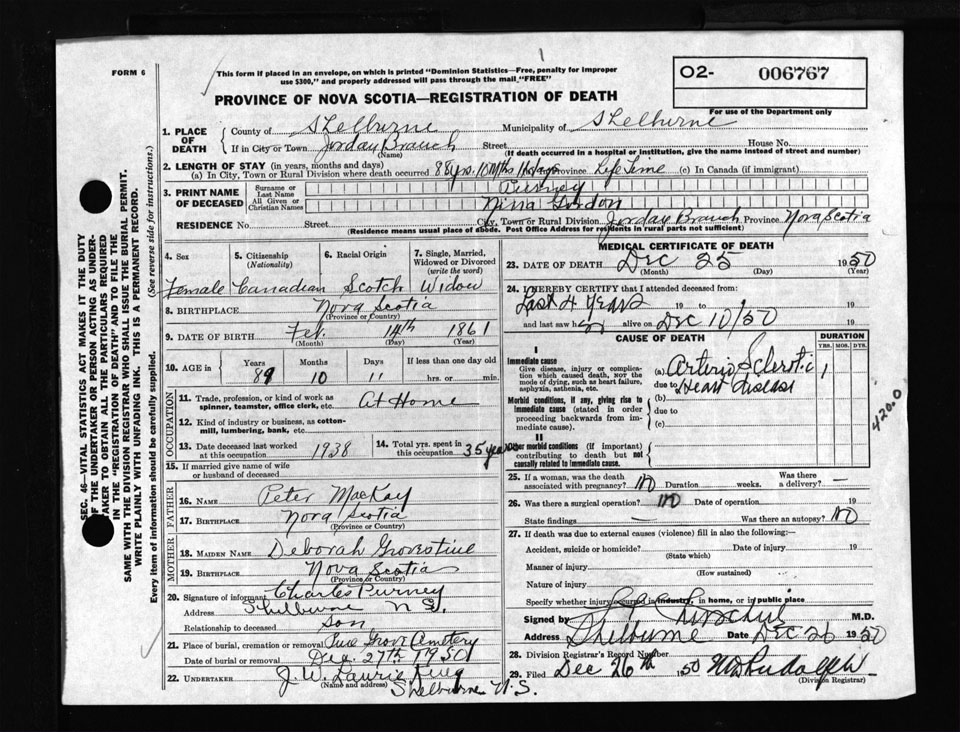 FORM 6
This form if placed in an envelope, on which is printed "Dominion Statistics—Free, penalty for improper
use $300," and properly addressed will pass through the mail "FREE"
O2- 006767
For use of the Department only
PROVINCE OF NOVA SCOTIA—REGISTRATION OF DEATH
1. PLACE OF DEATH
County of Shelburne Municipality of Shelburne
If in City or Town Jorday Branch Street House No.
(Name) (If death occurred in a hospital or institution, give the name instead of street and number)
2. LENGTH OF STAY (in years, months and days)
(a) In City, Town or Rural Division where death occurred 88 yrs. 10 mths Province Life Time (c) In Canada (if immigrant)
3. PRINT NAME OF DECEASED
Surname or Last Name Purney
All Given or Christian Names Nina Gordon
RESIDENCE No. Street City, Town or Rural Division Jorday Branch Province Nova Scotia
(Residence means usual place of abode. Post Office Address for residents in rural parts not sufficient)
4. Sex Female
5. Citizenship (Nationality) Canadian
6. Racial Origin Scotch
7. Single, Married, Widowed or Divorced (write the word) Widow
8. BIRTHPLACE Nova Scotia
(Province or Country)
9. DATE OF BIRTH Feb. 14th 1861
(Month) (Day) (Year)
10. AGE in Years Months Days If less than one day old
89 10 11 hrs. or min.
OCCUPATION
11. Trade, profession, or kind of work as spinner, teamster, office clerk, etc. At Home
12. Kind of industry or business, as cotton-mill, lumbering, bank, etc.
13. Date deceased last worked at this occupation 1938
14. Total yrs. spent in this occupation 35 years
15. If married give name of wife or husband of deceased
FATHER
16. NAME Peter MacKay
17. BIRTHPLACE Nova Scotia
(Province or Country)
MOTHER
18. MAIDEN NAME Deborah Grovestine
19. BIRTHPLACE Nova Scotia
(Province or Country)
20. Signature of informant Charles Purney
Address Shelburne N.S.
Relationship to deceased son
21. Place of burial, cremation or removal Pine Grove Cemetery
Date of burial or removal Dec. 27th 1950
22. UNDERTAKER J. W. Laurie
(Name and address) Shelburne N.S.
MEDICAL CERTIFICATE OF DEATH
23. DATE OF DEATH Dec 25 1950
(Month) (Day) (Year)
24. I HEREBY CERTIFY that I attended deceased from:
Last 4 Years 19 to 19
and last saw h alive on Dec 10/50 19
CAUSE OF DEATH
DURATION
YRS. MOS. DYS.
I
Immediate cause
Give disease, injury or complication which caused death, not the mode of dying, such as heart failure, asphyxia, asthenia, etc.
(a) Arterio Sclerotic 1
due to Heart disease
Morbid conditions, if any, giving rise to immediate cause (stated in order proceeding backwards from immediate cause).
(b)
due to
(c)
420.0
II
Other morbid conditions (if important) contributing to death but not causally related to immediate cause.
25. If a woman, was the death associated with pregnancy? NO Duration weeks. Was there a delivery? —
26. Was there a surgical operation? NO Date of operation 19
State findings — Was there an autopsy? NO
27. If death was due to external causes (violence) fill in also the following:
Accident, suicide or homicide? Date of injury 19
(State which)
Manner of injury
(How sustained)
Nature of injury
Specify whether injury occurred in industry, in home, or in public place
Signed by M.D.
Address Shelburne Date Dec 26 1950
28. Division Registrar's Record Number
29. Filed Dec 26th 1950
(Division Registrar)
SEC. 46—VITAL STATISTICS ACT MAKES IT THE DUTY
OF THE UNDERTAKER OR PERSON ACTING AS UNDER-
TAKER TO OBTAIN ALL THE PARTICULARS REQUIRED
IN THE "REGISTRATION OF DEATH" AND TO FILE THE
SAME WITH THE DIVISION REGISTRAR WHO SHALL ISSUE THE BURIAL PERMIT.
WRITE PLAINLY WITH UNFADING INK. THIS IS A PERMANENT RECORD.
Every item of information should be carefully supplied. (See reverse side for instructions.)